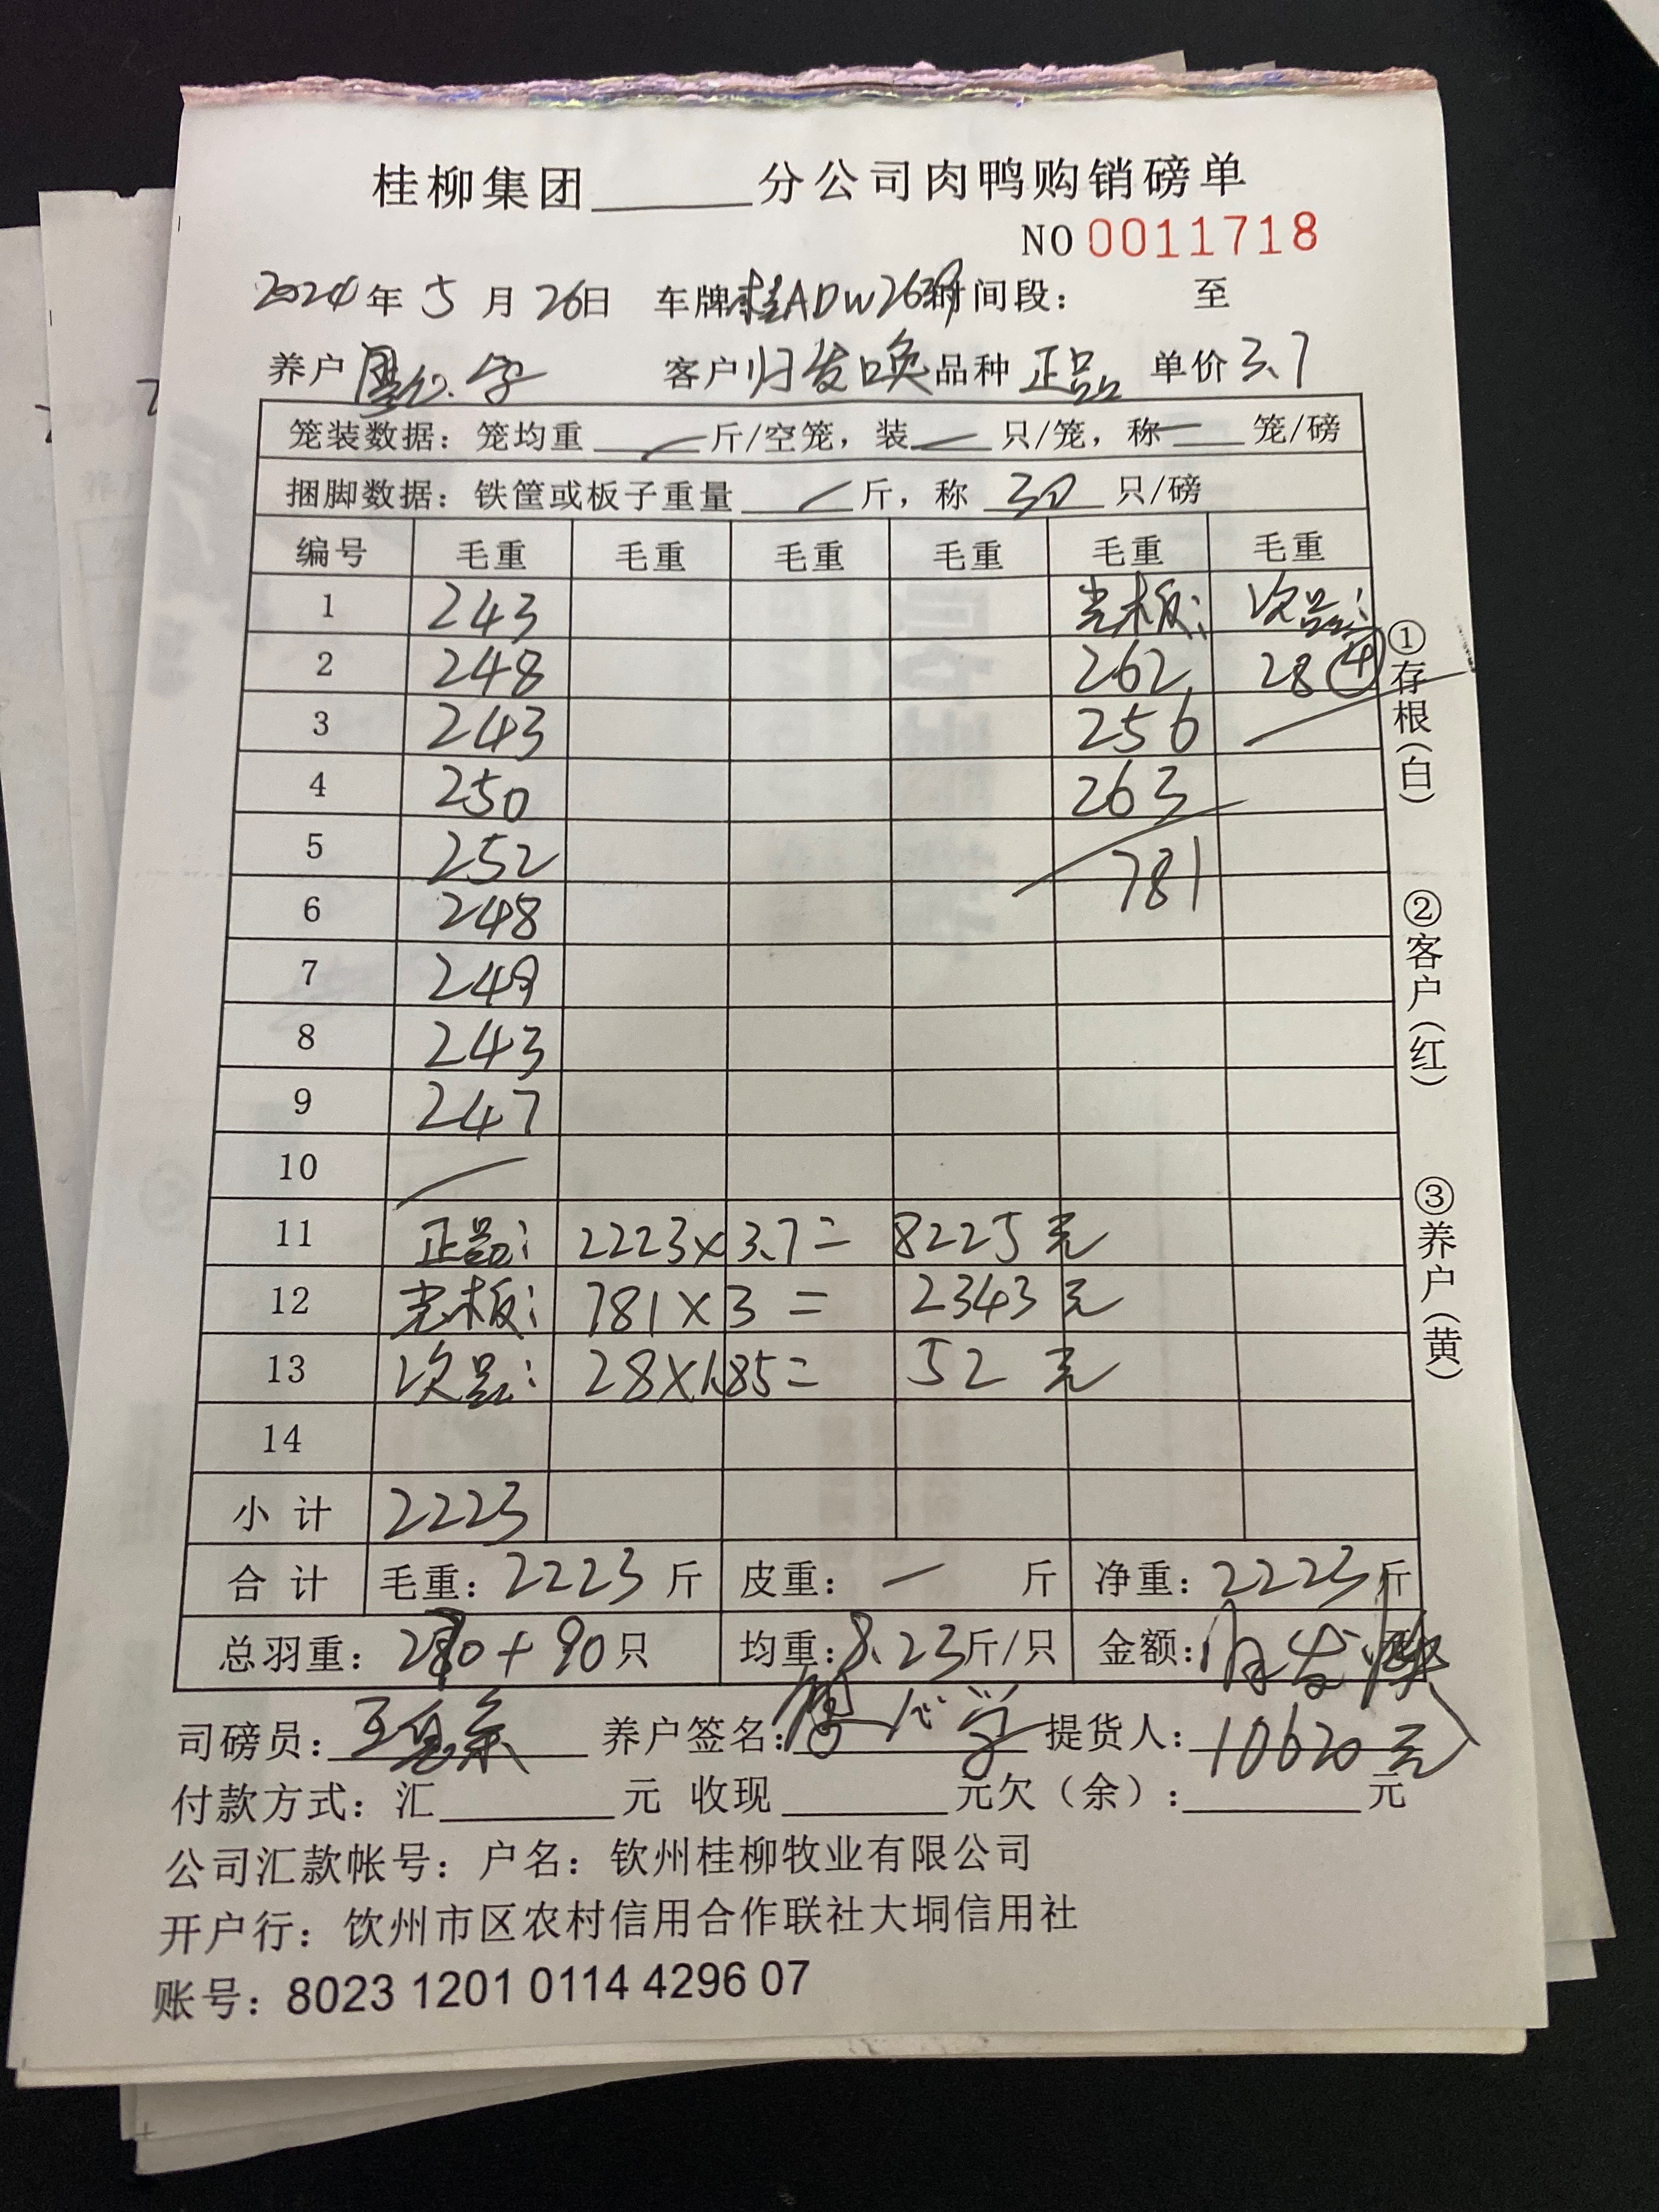 桂柳集团______分公司肉鸭购销磅单
NO 0011718
2024年5月26日 车牌桂ADW26 时间段： 至
养户 客户归发唤 品种 正品 单价3.7
笼装数据：笼均重 — 斤/空笼，装 — 只/笼，称 — 笼/磅
捆脚数据：铁筐或板子重量 — 斤，称 30 只/磅
编号 毛重 毛重 毛重 毛重 毛重 毛重
1 243 光板： 次品：
2 248 262 28 ④
3 243 256
4 250 263
5 252 781
6 248
7 249
8 243
9 247
10
11 正品： 2223×3.7= 8225元
12 光板： 781×3= 2343元
13 次品： 28×1.85= 52元
14
小计 2223
合计 毛重：2223斤 皮重：— 斤 净重：2223斤
总羽重：270+90只 均重：8.23斤/只 金额：归发唤
司磅员： 养户签名： 提货人：10620元
付款方式：汇______元 收现______元欠（余）：______元
公司汇款帐号：户名：钦州桂柳牧业有限公司
开户行：饮州市区农村信用合作联社大垌信用社
账号：8023 1201 0114 4296 07
①存根（白）
②客户（红）
③养户（黄）